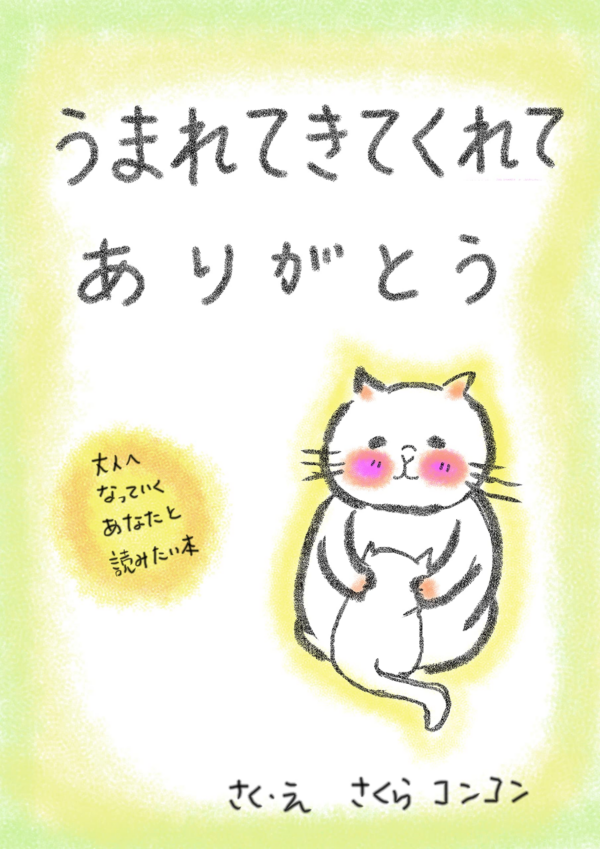 うまれてきてくれて
ありがとう
大人へ
なっていく
あなたと
読みたい本
さく・え　さくら コンコン